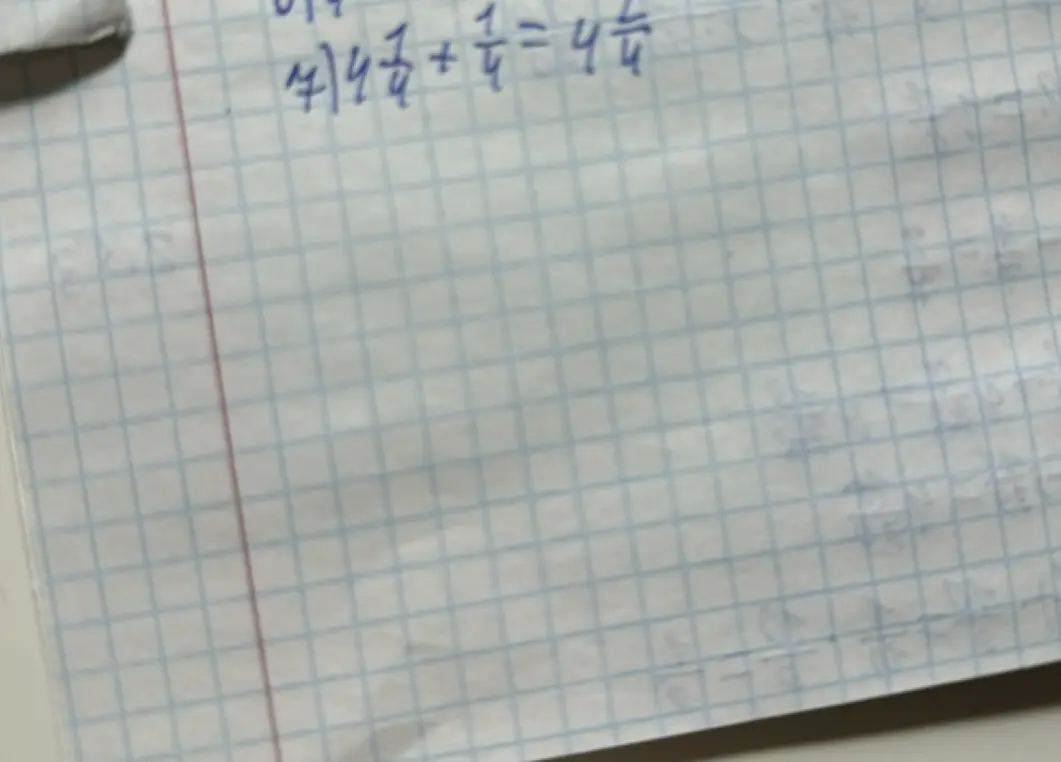 7) 4 1/4 + 1/4 = 4 2/4